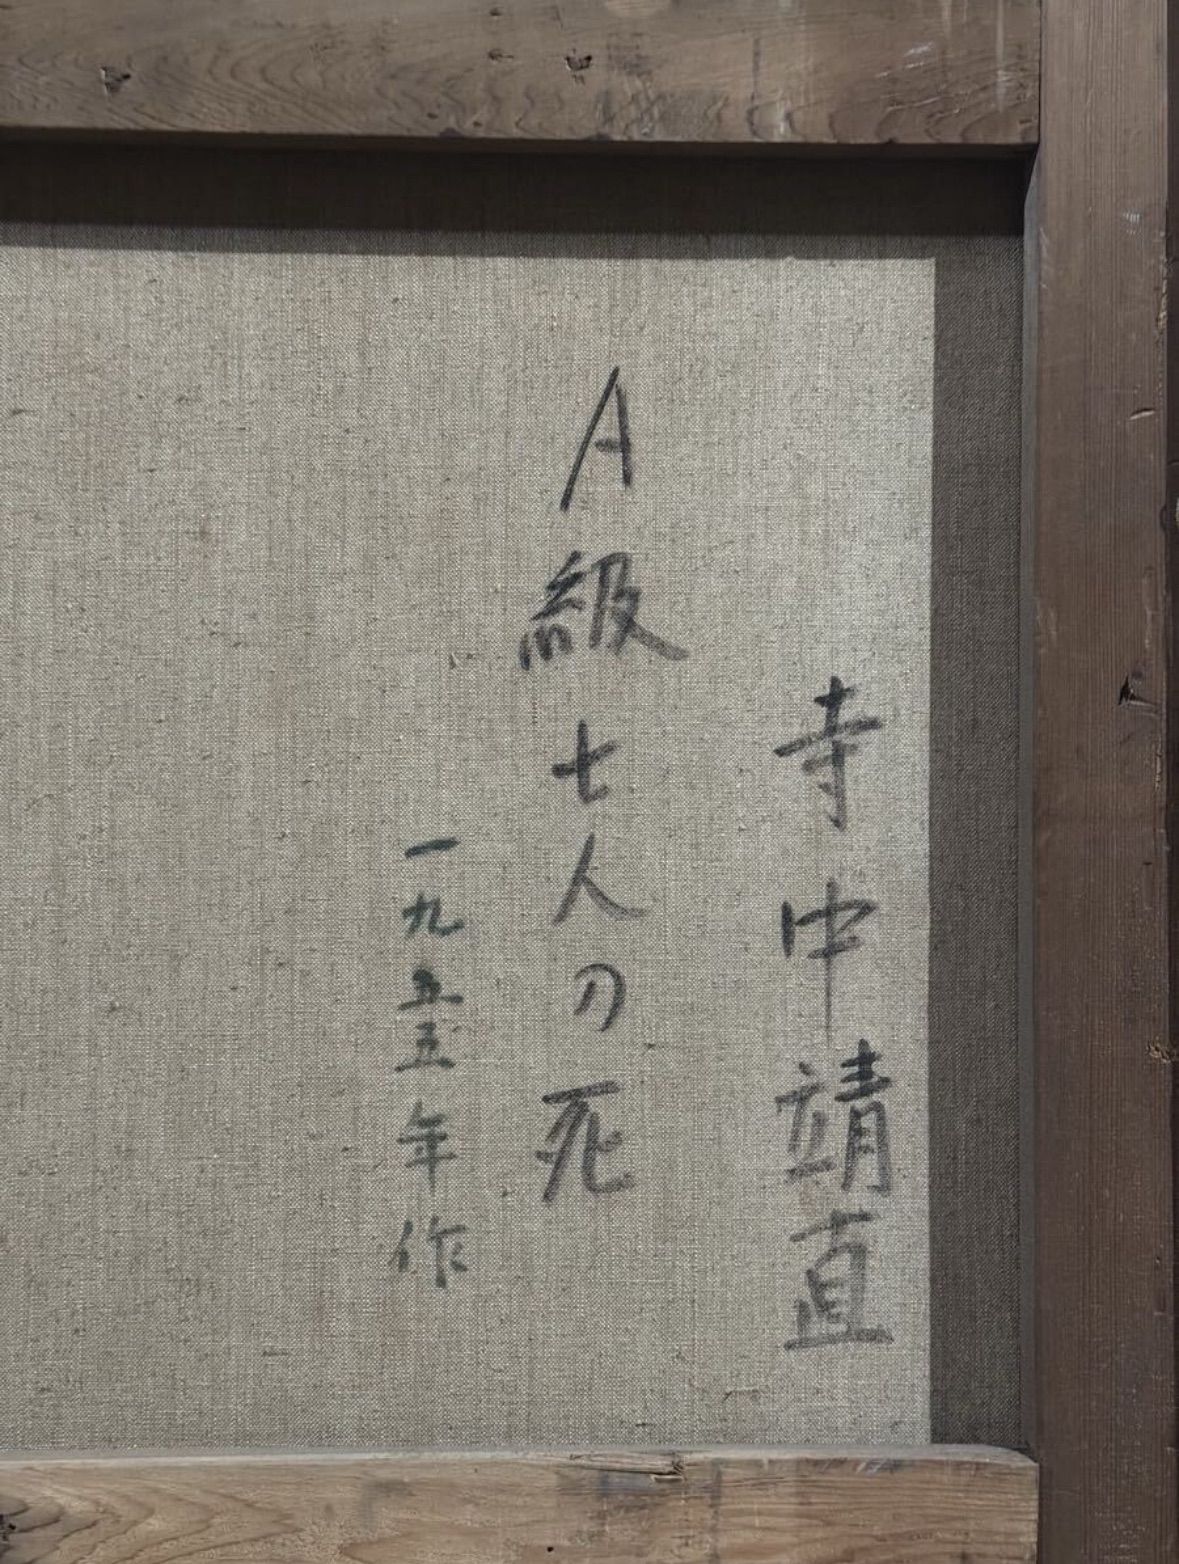 寺中靖直
A級七人の死
一九五五年作